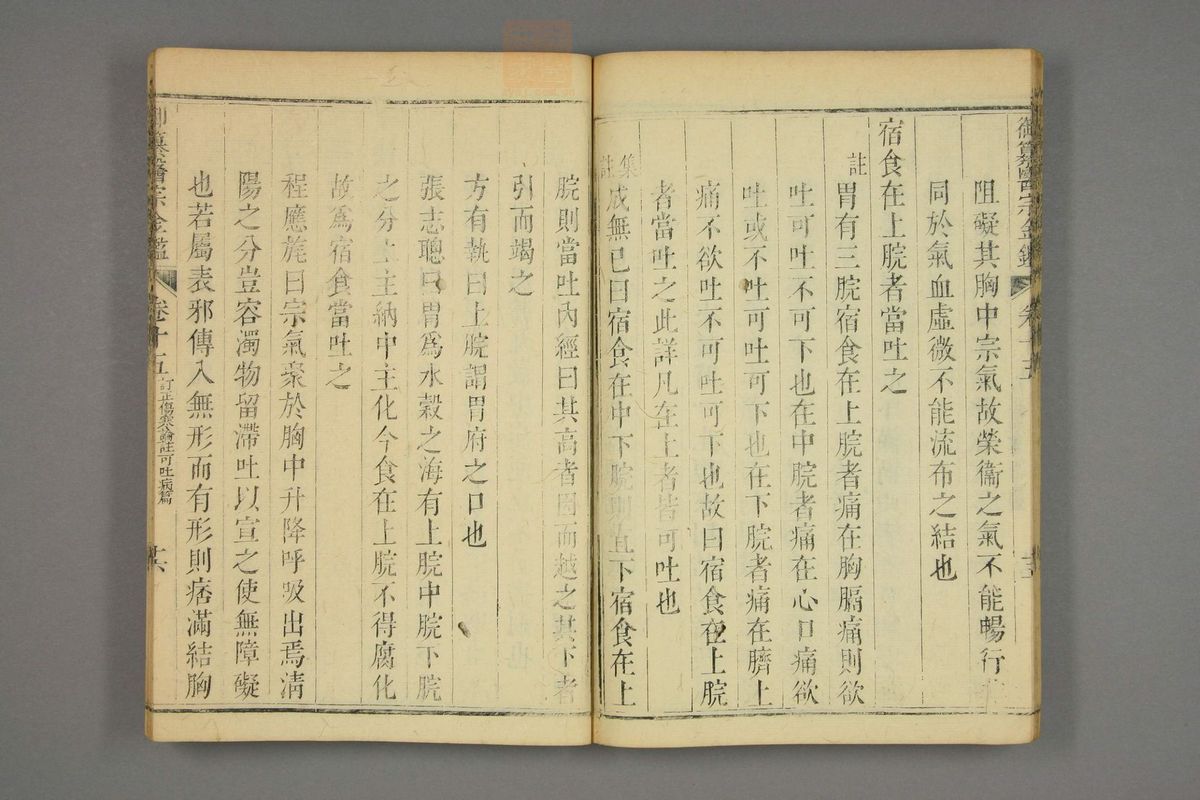 御纂醫宗金鑑 卷十五
阻礙其胸中宗氣故榮衞之氣不能暢行
同於氣血虛微不能流布之結也
宿食在上脘者當吐之
註 胃有三脘宿食在上脘者痛在胸膈痛則欲
吐可吐不可下也在中脘者痛在心口痛欲
吐或不吐可吐可下也在下脘者痛在臍上
痛不欲吐不可吐可下也故曰宿食在上脘
者當吐之此詳凡在上者皆可吐也
集註 成無已曰宿食在中下脘則宜下宿食在上
脘則當吐內經曰其高者因而越之其下者
引而竭之
方有執曰上脘謂胃府之口也
張志聰曰胃爲水穀之海有上脘中脘下脘
之分上主納中主化今食在上脘不得腐化
故爲宿食當吐之
程應旄曰宗氣聚於胸中升降呼吸出焉清
陽之分豈容濁物留滯吐以宣之使無障礙
也若屬表邪傳入無形而有形則痞滿結胸
御纂醫宗金鑑 卷十五 訂正傷寒論註可吐病篇 十六